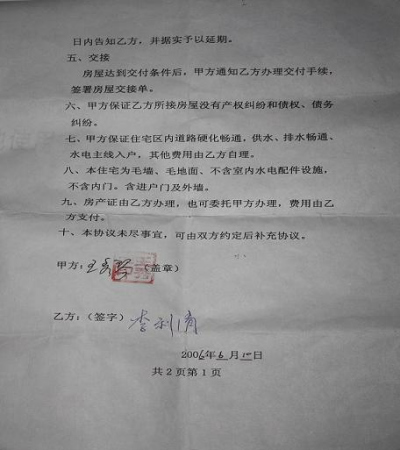 日内告知乙方，并据实予以延期。
五、交接
房屋达到交付条件后，甲方通知乙方办理交付手续，
签署房屋交接单。
六、甲方保证乙方所接房屋没有产权纠纷和债权、债务
纠纷。
七、甲方保证住宅区内道路硬化畅通，供水、排水畅通、
水电主线入户，其他费用由乙方自理。
八、本住宅为毛墙、毛地面、不含室内水电配件设施，
不含内门。含进户门及外墙。
九、房产证由乙方办理，也可委托甲方办理，费用由乙
方支付。
十、本协议未尽事宜，可由双方约定后补充协议。
甲方：（盖章）
乙方：（签字）李利清
2006年6月10日
共2页第1页